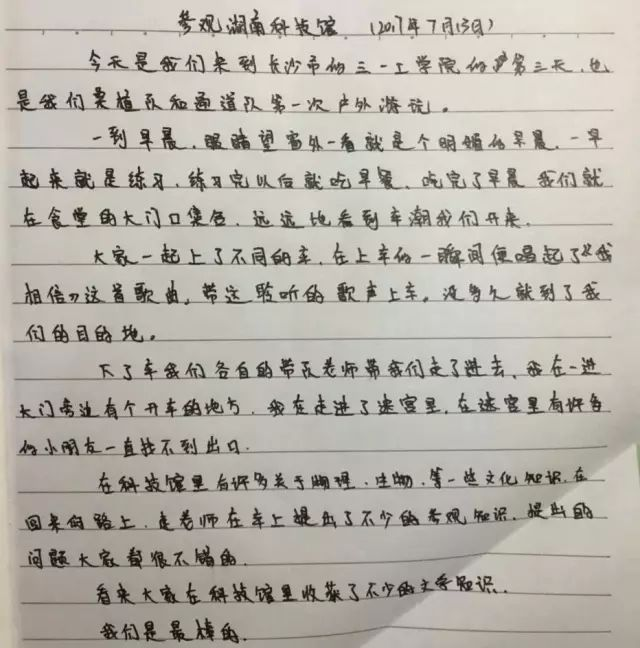 参观湖南科技馆 (2017年7月13日)
今天是我们来到长沙市的三一工学院的第三天,也
是我们桑植队和通道队第一次户外游玩。
一到早晨,眼睛望窗外一看就是个明媚的早晨,一早
起来就是练习,练习完以后就吃早餐,吃完了早晨 我们就
在食堂的大门口集合,远远地看到车潮我们开来,
大家一起上了不同的车,在上车的一瞬间便唱起了《我
相信》这首歌曲,带这 听的歌声上车。没多久就到了我
们的目的地。
下了车我们各自的带队老师带我们走了进去,我在一进
大门旁边有个开车的地方,我在走进了迷宫里,在迷宫里有许多
的小朋友一直找不到出口.
在科技馆里有许多关于物理、生物,等一些文化知识,在
回来的路上,老师在车上提出了不少的参观知识,提出的
问题大家都很不错的.
看来大家在科技馆里收获了不少的文学知识.
我们是最棒的.